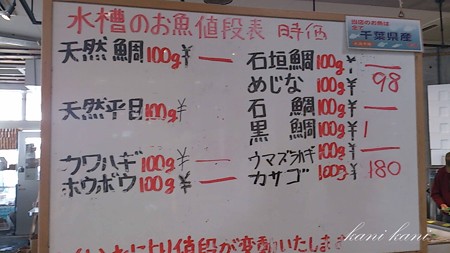 水槽のお魚値段表 時価
当店のお魚は
全て
千葉県産
天然 鯛 100g ¥ —
天然平目 100g ¥
カワハギ 100g ¥ —
ホウボウ 100g ¥ —
石垣鯛 100g ¥ —
めじな 100g ¥ 98
石 鯛 100g ¥ —
黒 鯛 100g ¥ 1
ウマズラハギ 100g ¥ —
カサゴ 100g ¥ 180
により値段が変動いたします
kani kani